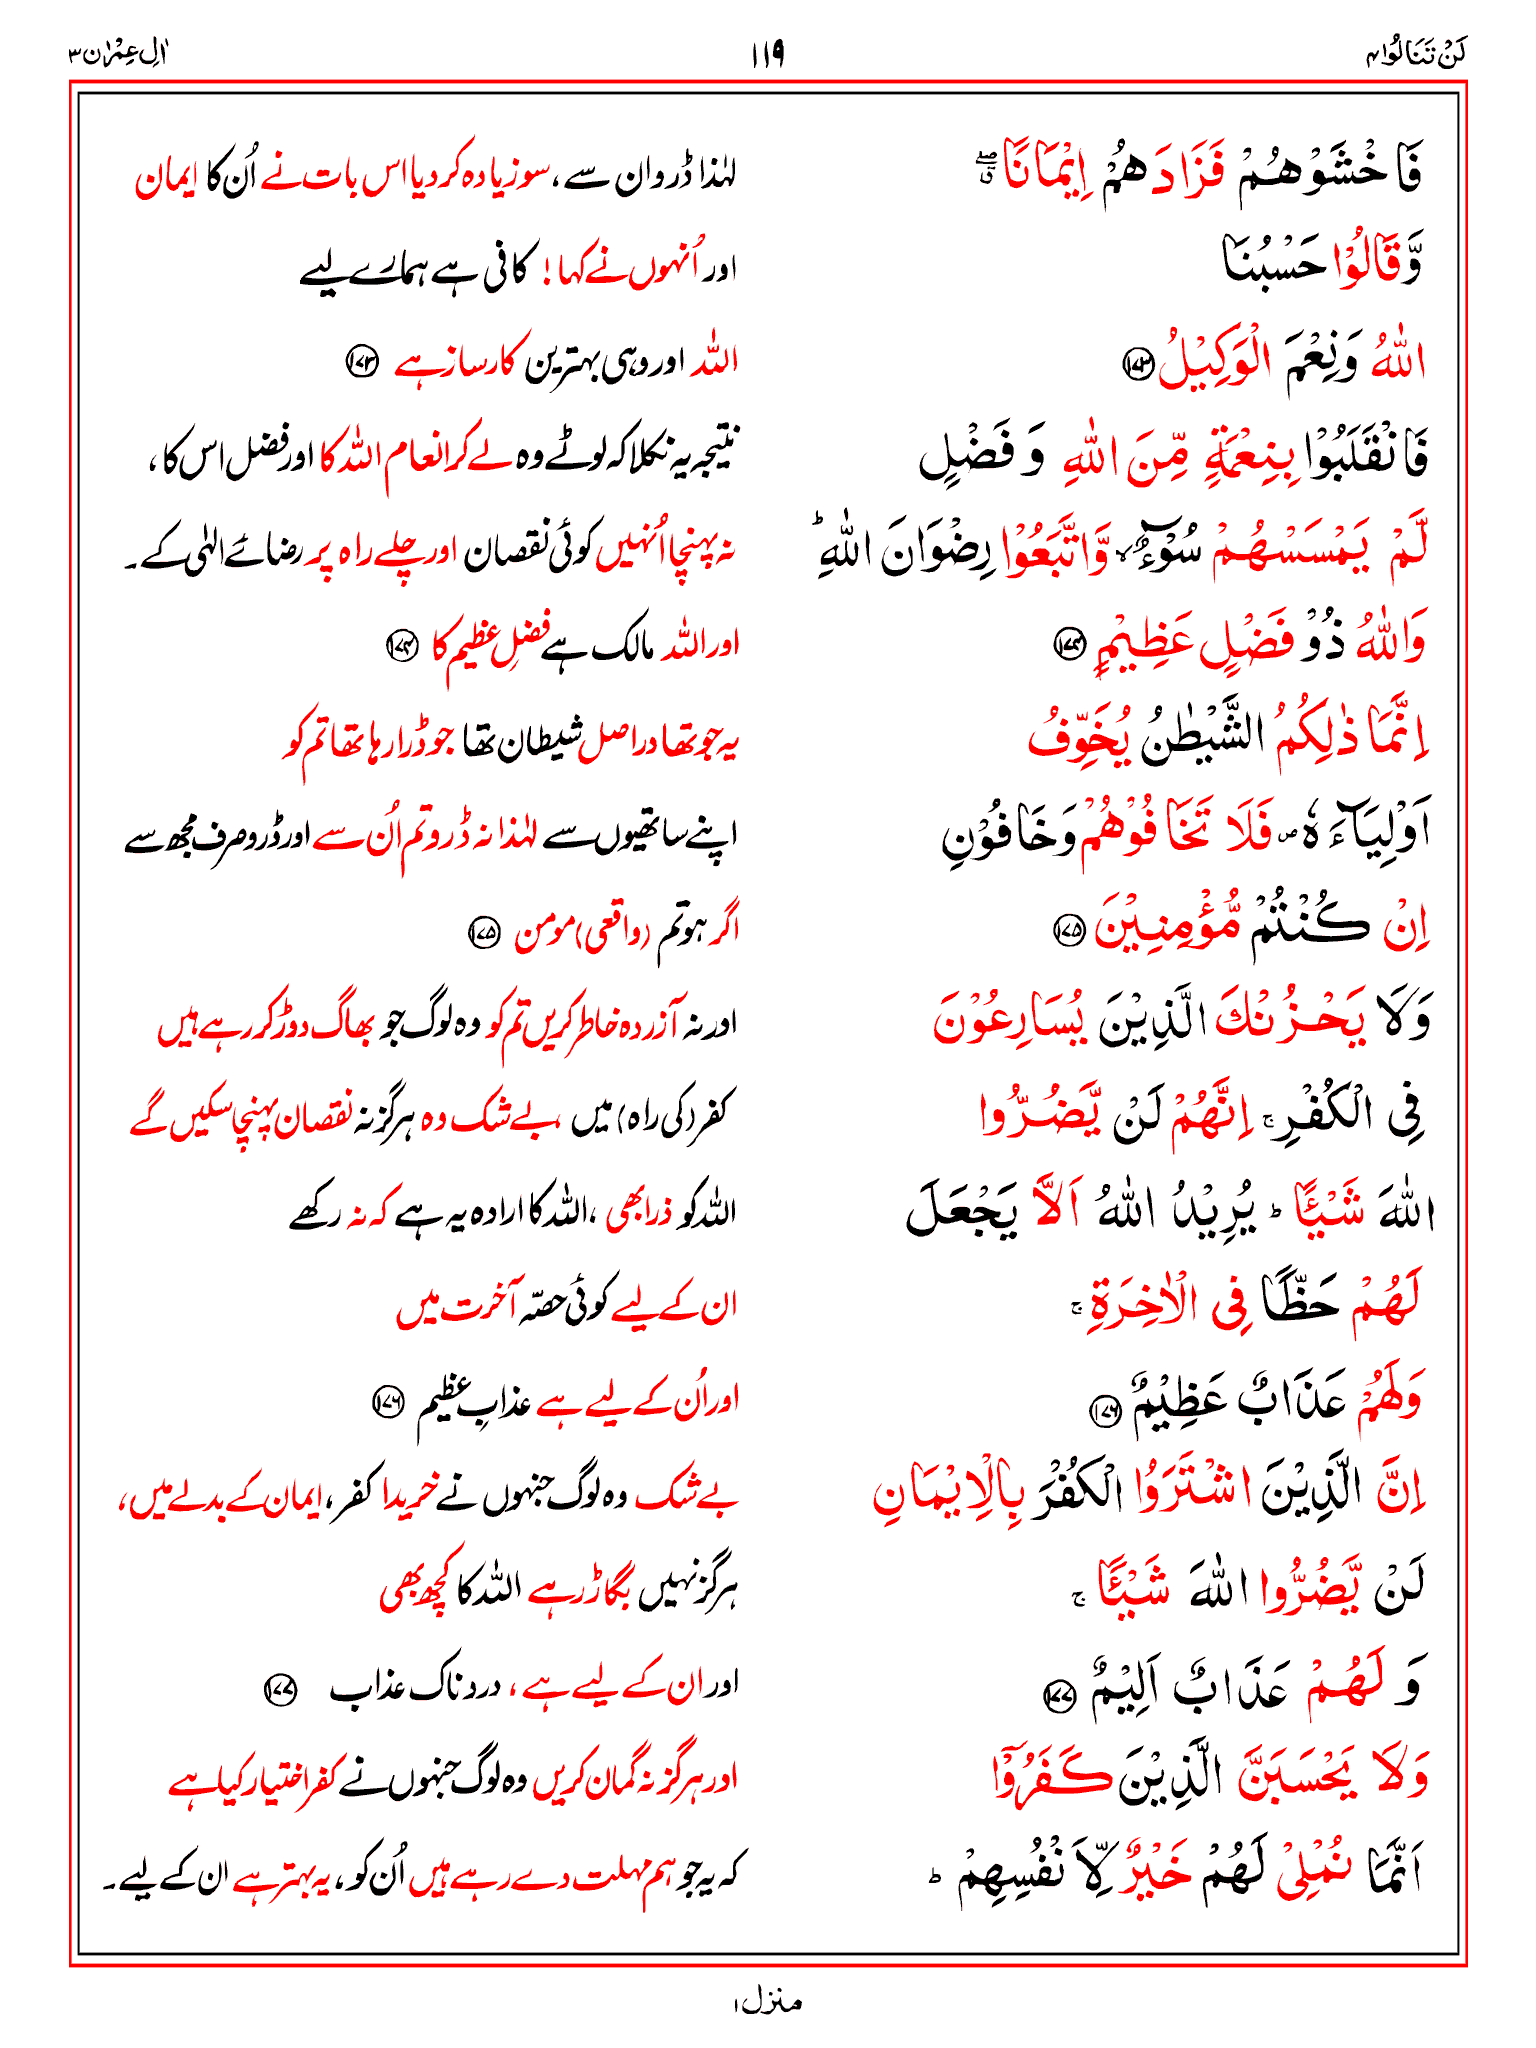 لَنْ تَنَالُوا۴ ۱۱۹ اٰلِ عِمْرٰن۳
فَاخْشَوْهُمْ فَزَادَهُمْ اِيْمَانًا ۖۗ لہٰذا ڈرو ان سے، سو زیادہ کر دیا اس بات نے اُن کا ایمان
وَّقَالُوْا حَسْبُنَا اور اُنہوں نے کہا! کافی ہے ہمارے لیے
اللّٰهُ وَنِعْمَ الْوَكِيْلُ ۱۷۳ اللہ اور وہی بہترین کارساز ہے ۱۷۳
فَانْقَلَبُوْا بِنِعْمَةٍ مِّنَ اللّٰهِ وَ فَضْلٍ نتیجہ یہ نکلا کہ لوٹے وہ لے کر انعام اللہ کا اور فضل اس کا،
لَّمْ يَمْسَسْهُمْ سُوْٓءٌ ۙ وَّاتَّبَعُوْا رِضْوَانَ اللّٰهِ ؕ نہ پہنچا اُنہیں کوئی نقصان اور چلے راہ پر رضائے الٰہی کے۔
وَاللّٰهُ ذُوْ فَضْلٍ عَظِيْمٍ ۱۷۴ اور اللہ مالک ہے فضلِ عظیم کا ۱۷۴
اِنَّمَا ذٰلِكُمُ الشَّيْطٰنُ يُخَوِّفُ یہ جو تھا دراصل شیطان تھا جو ڈرا رہا تھا تم کو
اَوْلِيَآءَهٗ ۪ فَلَا تَخَافُوْهُمْ وَخَافُوْنِ اپنے ساتھیوں سے لہٰذا نہ ڈرو تم اُن سے اور ڈرو صرف مجھ سے
اِنْ كُنْتُمْ مُّؤْمِنِيْنَ ۱۷۵ اگر ہو تم (واقعی) مومن ۱۷۵
وَلَا يَحْزُنْكَ الَّذِيْنَ يُسَارِعُوْنَ اور نہ آزردہ خاطر کریں تم کو وہ لوگ جو بھاگ دوڑ کر رہے ہیں
فِى الْكُفْرِ ۚ اِنَّهُمْ لَنْ يَّضُرُّوا کفر (کی راہ) میں، بے شک وہ ہرگز نہ نقصان پہنچا سکیں گے
اللّٰهَ شَيْـًٔا ؕ يُرِيْدُ اللّٰهُ اَلَّا يَجْعَلَ اللہ کو ذرا بھی، اللہ کا ارادہ یہ ہے کہ نہ رکھے
لَهُمْ حَظًّا فِى الْاٰخِرَةِ ۚ ان کے لیے کوئی حصّہ آخرت میں
وَلَهُمْ عَذَابٌ عَظِيْمٌ ۱۷۶ اور اُن کے لیے ہے عذابِ عظیم ۱۷۶
اِنَّ الَّذِيْنَ اشْتَرَوُا الْكُفْرَ بِالْاِيْمَانِ بے شک وہ لوگ جنہوں نے خریدا کفر، ایمان کے بدلے میں،
لَنْ يَّضُرُّوا اللّٰهَ شَيْـًٔا ۚ ہرگز نہیں بگاڑ رہے اللہ کا کچھ بھی
وَ لَهُمْ عَذَابٌ اَلِيْمٌ ۱۷۷ اور ان کے لیے ہے، دردناک عذاب ۱۷۷
وَلَا يَحْسَبَنَّ الَّذِيْنَ كَفَرُوْٓا اور ہرگز نہ گمان کریں وہ لوگ جنہوں نے کفر اختیار کیا ہے
اَنَّمَا نُمْلِىْ لَهُمْ خَيْرٌ لِّاَنْفُسِهِمْ ؕ کہ یہ جو ہم مہلت دے رہے ہیں اُن کو، یہ بہتر ہے ان کے لیے۔
منزل۱